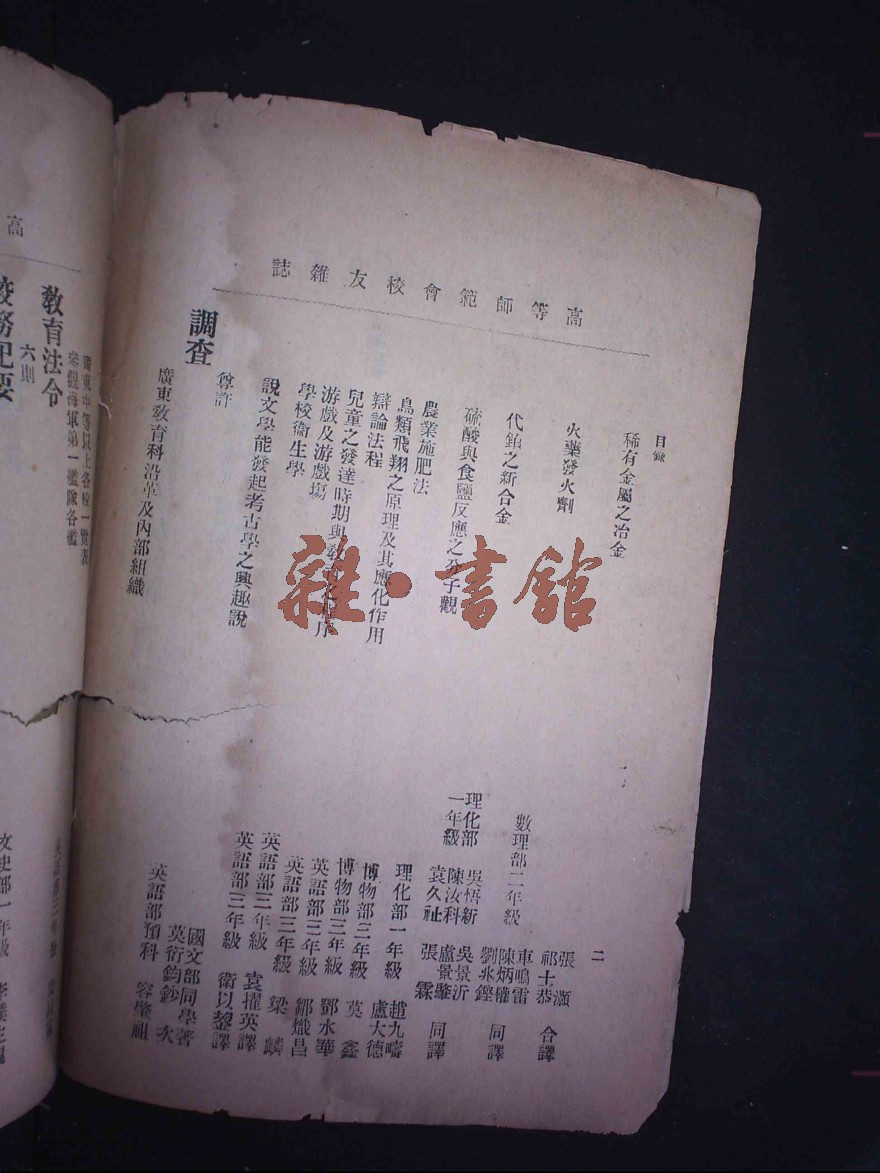 高等師範會校友雜誌
目錄
二
稀有金屬之冶金
張灝
祁士恭 合譯
火藥發火劑
車鳴雷
陳炳權
劉兆鏗 同譯
代鉑之新合金
數理部二年級
吳景沂
盧景肇
張霖 同譯
硫酸與食鹽反應之分子觀
理化部一年級
吳悟新
陳汝科
袁久祉
農業施肥法
理化部一年級 趙九疇
盧大德
鳥類飛翔之原理及其應化作用
博物部三年級 莫鑫
辯論法程
博物部三年級 鄧水華
兒童之發達時期與教育之程序
英語部三年級 鄒熾昌
游戲及游戲塲
英語部三年級 梁麟
學校衞生學
英語部三年級 袁擢英譯
說文學能發起考古學之興趣說
英語部三年級 衛以鋆譯
尊許
國文部同學著
英衍鈞鈔次
調查
廣東教育科沿革及內部組織
英語部預科 容肇祖
高
廣東中等以上各校一覽表
參觀海軍第一艦隊各艦
教育法令
六則
校務紀要
文史部一年級